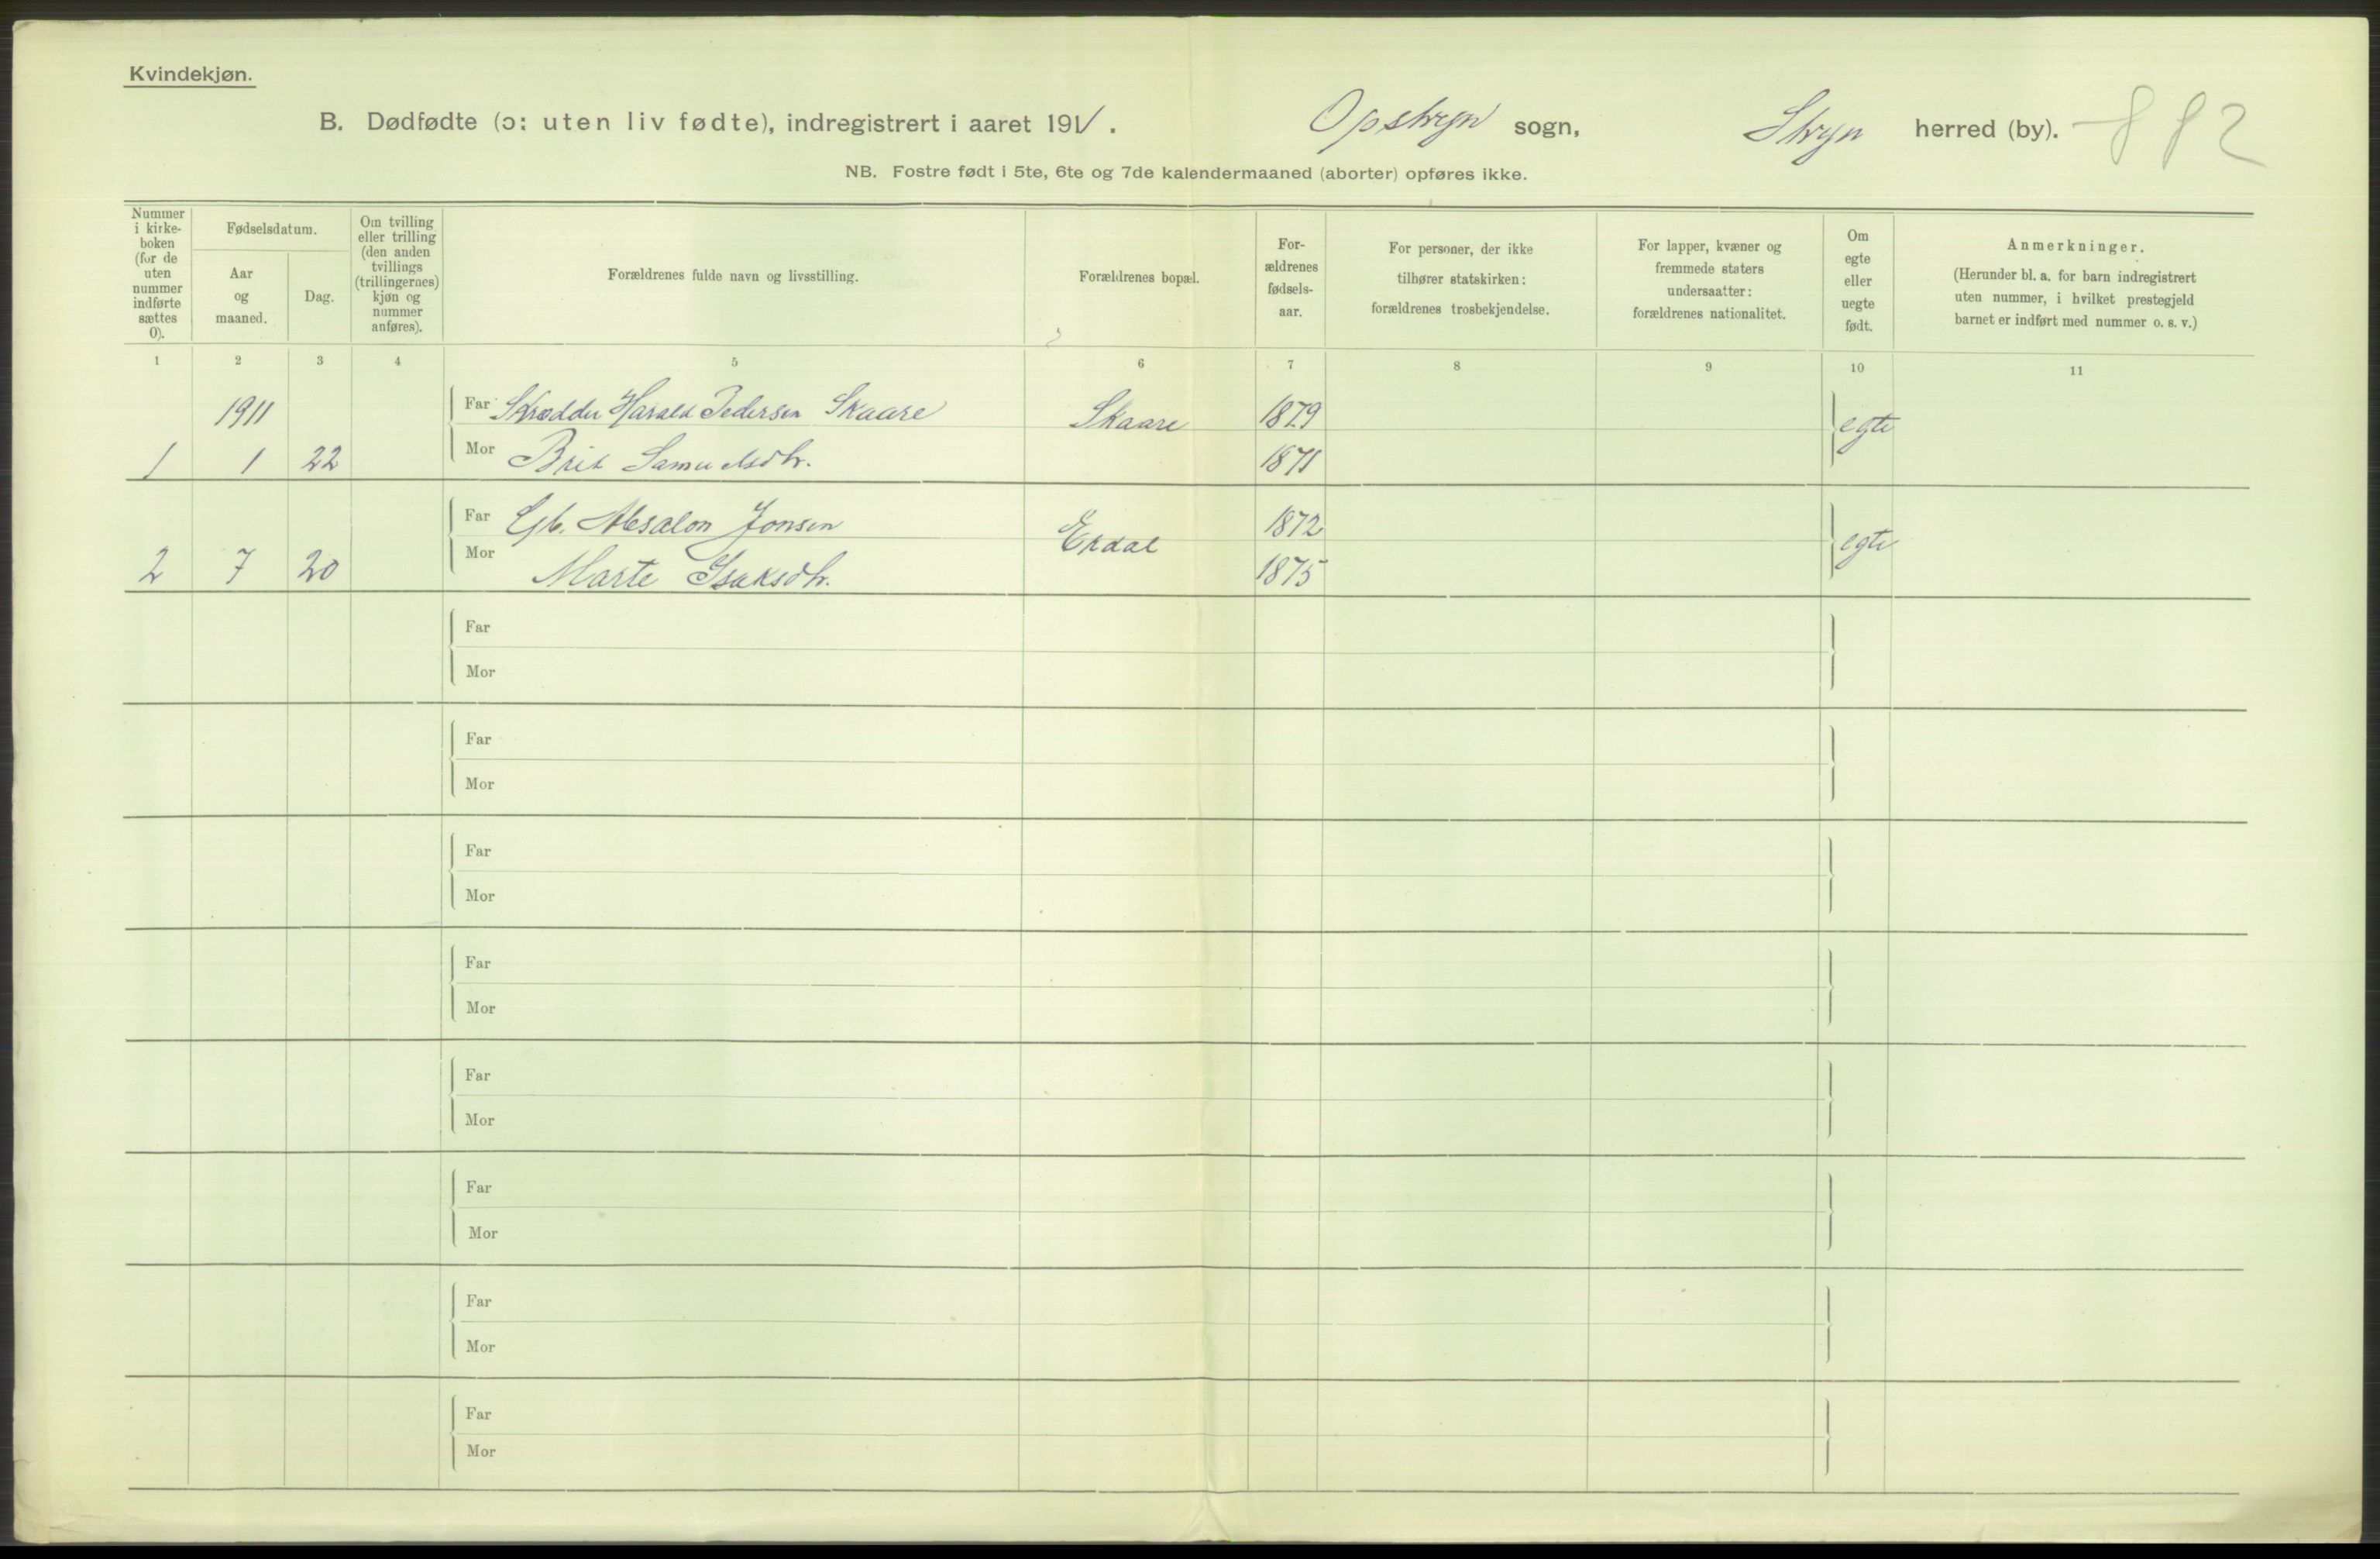 Kvindekjøn.
B. Dødfødte (ɔ: uten liv fødte), indregistrert i aaret 1911. Opstryn sogn, Stryn herred (by). 882
NB. Fostre født i 5te, 6te og 7de kalendermaaned (aborter) opføres ikke.
Nummer i kirke-boken (for de uten nummer indførte sættes 0).
Fødselsdatum.
Aar og maaned.
Dag.
Om tvilling eller trilling (den anden tvillings (trillingernes) kjøn og nummer anføres).
Forældrenes fulde navn og livsstilling.
Forældrenes bopæl.
For-ældrenes fødsels-aar.
For personer, der ikke tilhører statskirken: forældrenes trosbekjendelse.
For lapper, kvæner og fremmede staters undersaatter: forældrenes nationalitet.
Om egte eller uegte født.
Anmerkninger.
(Herunder bl. a. for barn indregistrert uten nummer, i hvilket prestegjeld barnet er indført med nummer o. s. v.)
1 2 3 4 5 6 7 8 9 10 11
1911 Far Skrædder Harald Pedersen Skaare Skaare 1879 egte
1 1 22 Mor Brit Samuelsdtr. 1871
Far Gb. Absalon Jonsen Erdal 1872 egte
2 7 20 Mor Marte Isaksdtr. 1875
Far
Mor
Far
Mor
Far
Mor
Far
Mor
Far
Mor
Far
Mor
Far
Mor
Far
Mor